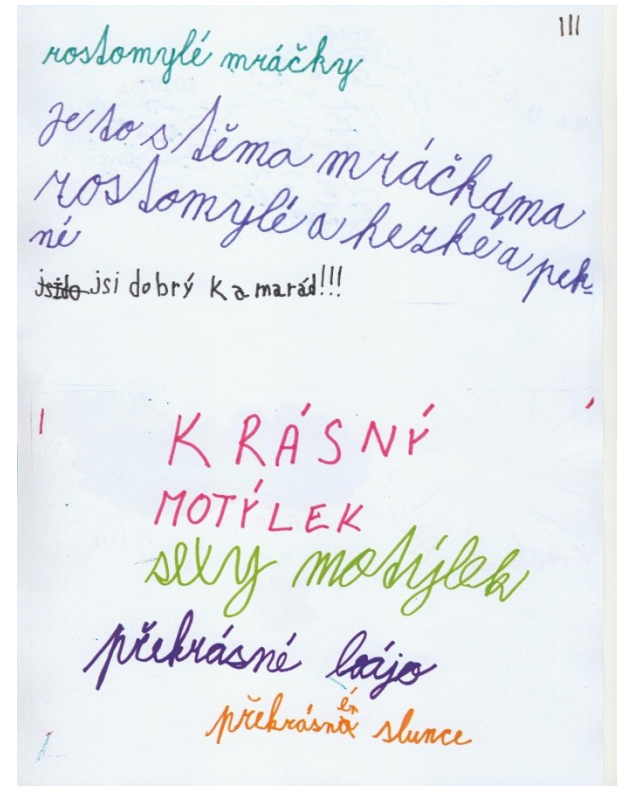 rostomylé mráčky
je to s těma mráčkama
rostomylé a hezké a pek-
né
jsi dobrý kamarád!!!
KRÁSNÝ
MOTÝLEK
sexy motýlek
překrásné
překrásné slunce